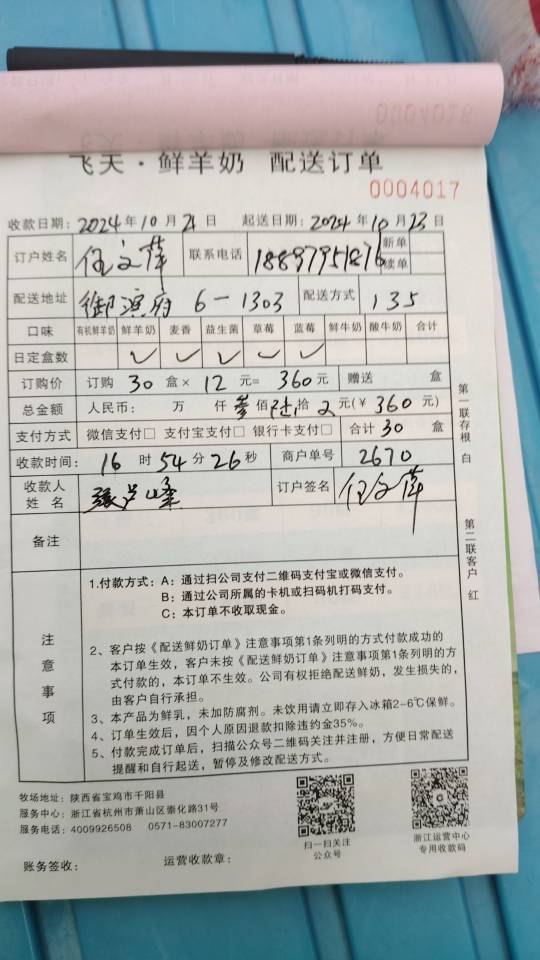 0004018
飞天·鲜羊奶 配送订单
0004017
收款日期：2024年10月21日 起送日期：2024年10月23日
订户姓名 任文萍 联系电话 18897951876 新单
续单
配送地址 御滨府 6-1303 配送方式 135
口味 有机鲜羊奶 鲜羊奶 麦香 益生菌 草莓 蓝莓 鲜牛奶 酸牛奶 合计
日定盒数 ✓ ✓ ✓ ✓ ✓
订购价 订购 30 盒× 12 元= 360 元 赠送 盒
总金额 人民币： 万 仟 叁佰陆拾 元(￥360元)
支付方式 微信支付□ 支付宝支付□ 银行卡支付□ 合计 30 盒
收款时间： 16 时 54 分 26 秒 商户单号 2670
收款人
姓 名 张芦峰 订户签名 任文萍
备注
第一联存根 白
第二联客户 红
注意事项
1.付款方式：A：通过扫公司支付二维码支付宝或微信支付。
B：通过公司所属的卡机或扫码机打码支付。
C：本订单不收取现金。
2、客户按《配送鲜奶订单》注意事项第1条列明的方式付款成功的
本订单生效，客户未按《配送鲜奶订单》注意事项第1条列明的方
式付款的，本订单不生效。公司有权拒绝配送鲜奶，发生损失的，
由客户自行承担。
3、本产品为鲜乳，未加防腐剂。未饮用请立即存入冰箱2-6℃保鲜。
4、订单生效后，因个人原因退款扣除违约金35%。
5、付款完成订单后，扫描公众号二维码关注并注册，方便日常配送
提醒和自行起送，暂停及修改配送方式。
牧场地址：陕西省宝鸡市千阳县
服务中心：浙江省杭州市萧山区崇化路31号
服务电话：4009926508 0571-83007277
扫一扫关注
公众号
浙江运营中心
专用收款码
账务签收： 运营收款章：